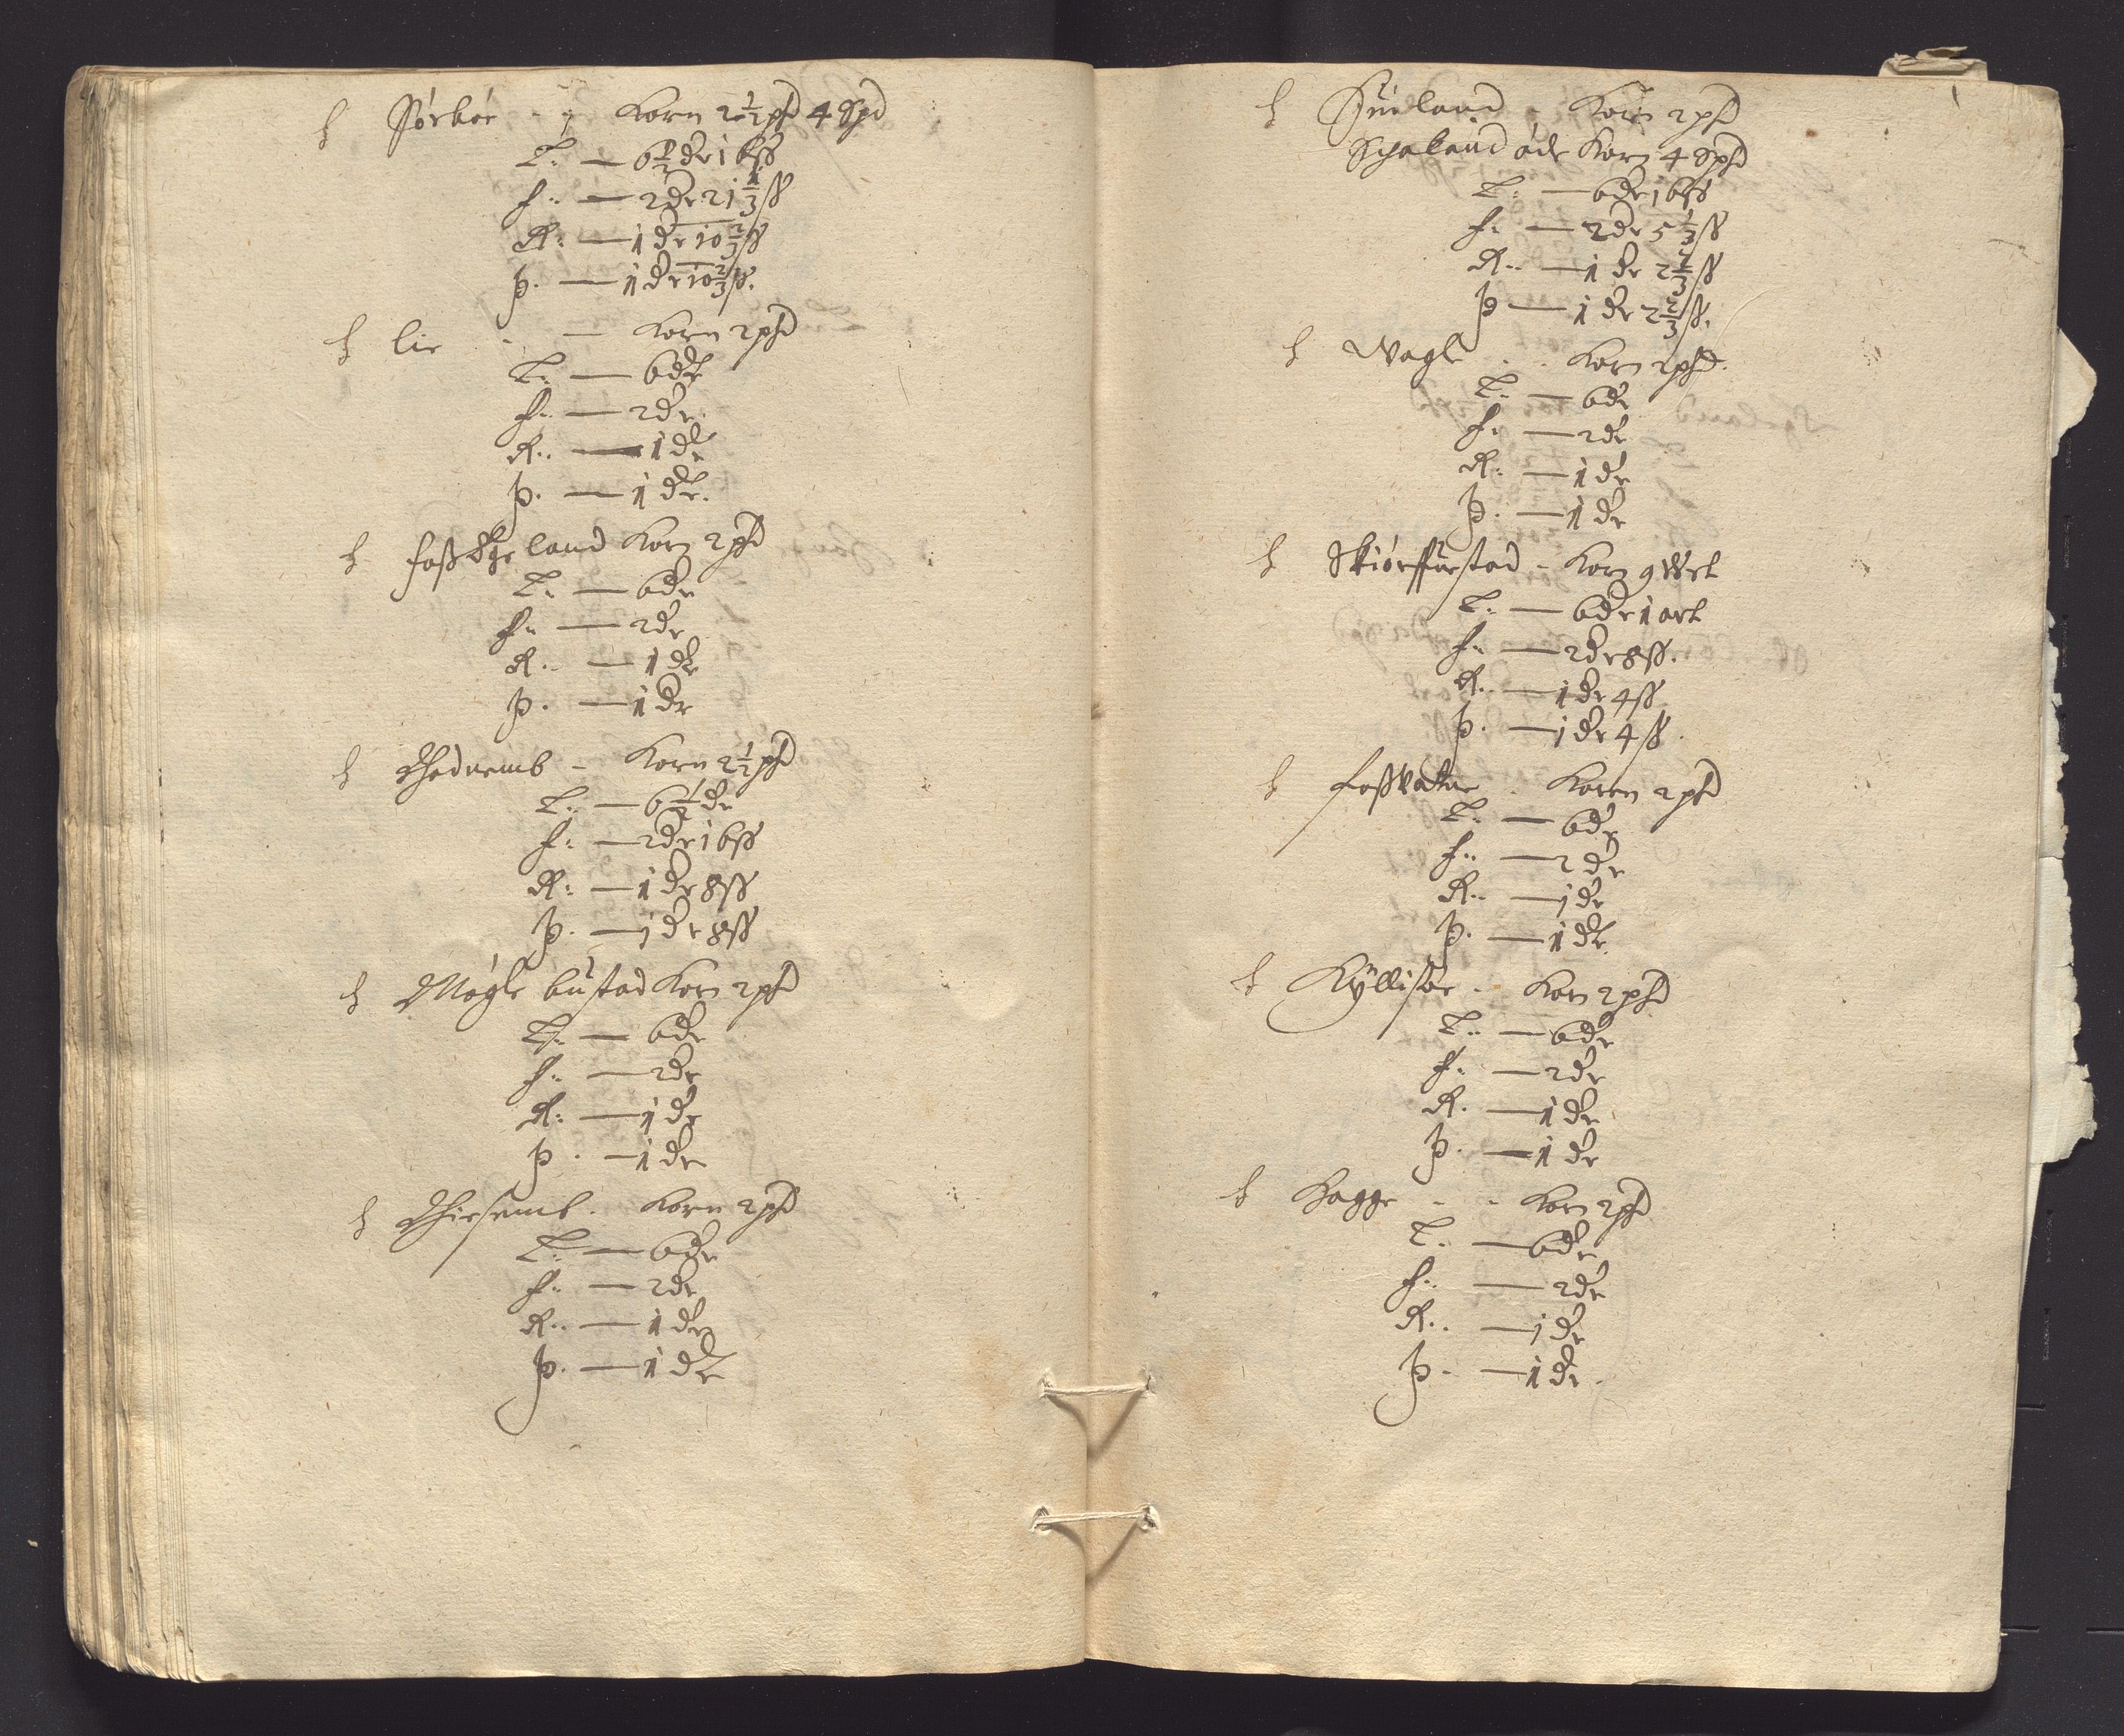 h Sørbøe - - Korn 2½ pfd 4 Spd
T: — 6½ dr 16 ss
f: — 2 dr 21⅓ ss
R: — 1 dr 10⅔ ss
p. — 1 dr 10⅔ ss.
h lie - — Korn 2 pfd
T: — 6 dr
f: — 2 dr.
R: — 1 dr
p. — 1 dr.
h foss Ege land Korn 2 pfd
T: — 6 dr
f: — 2 dr
R: — 1 dr
p. — 1 dr
h Hodnemb - Korn 2½ pfd
T: — 6½ dr
f: — 2 dr 16 ss
R: — 1 dr 8 ss
p. — 1 dr 8 ss
h Møgle bustad Korn 2 pfd
T: — 6 dr
f: — 2 dr
R: — 1 dr
p. — 1 dr
h Hiesemb. Korn 2 pfd
T: — 6 dr
f: — 2 dr
R: — 1 dr
p. — 1 dr
h Sueland - Korn 2 pfd
Schaland øde Korn 4 Spfd
T: — 6 dr 16 ss
f: — 2 dr 5⅓ ss
R: — 1 dr 2⅔ ss
p — 1 dr 2⅔ ss.
h Wagle . . Korn 2 pfd.
T: — 6 dr
f: — 2 dr
R: — 1 dr
p. — 1 dr
h Skiørffuestad - Korn 9 Vet
T: — 6 dr 1 ort
f: — 2 dr 8 ss.
R. — 1 dr 4 ss
p. — 1 dr 4 ss.
h fossvatne . Korn 2 pfd
T: — 6 dr
f: — 2 dr
R: — 1 dr
p. — 1 dr.
h Kyllisøe - Korn 2 pfd
T: — 6 dr
f: — 2 dr
R. — 1 dr
p. — 1 dr
h Hagge - - Korn 2 pfd
T. — 6 dr
f: — 2 dr
R: — 1 dr
p - — 1 dr.